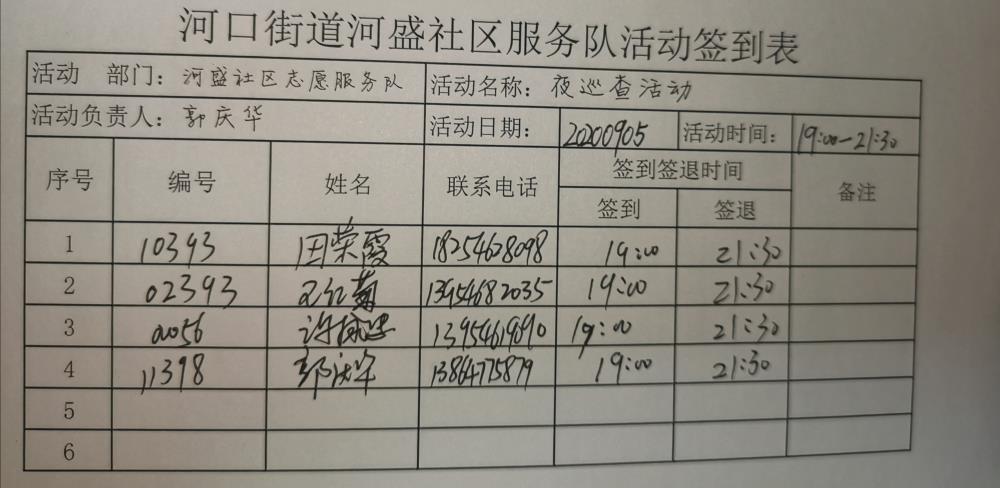 河口街道河盛社区服务队活动签到表
活动 部门：河盛社区志愿服务队 活动名称：夜巡查活动
活动负责人：郭庆华 活动日期：20200905 活动时间：19:00—21:30
序号 编号 姓名 联系电话 签到签退时间 备注
签到 签退
1 10393 田荣霞 18254628098 19:00 21:30
2 02393 王红菊 13954682035 19:00 21:30
3 许 13954619690 19:00 21:30
4 11398 郭庆华 13864775879 19:00 21:30
5
6